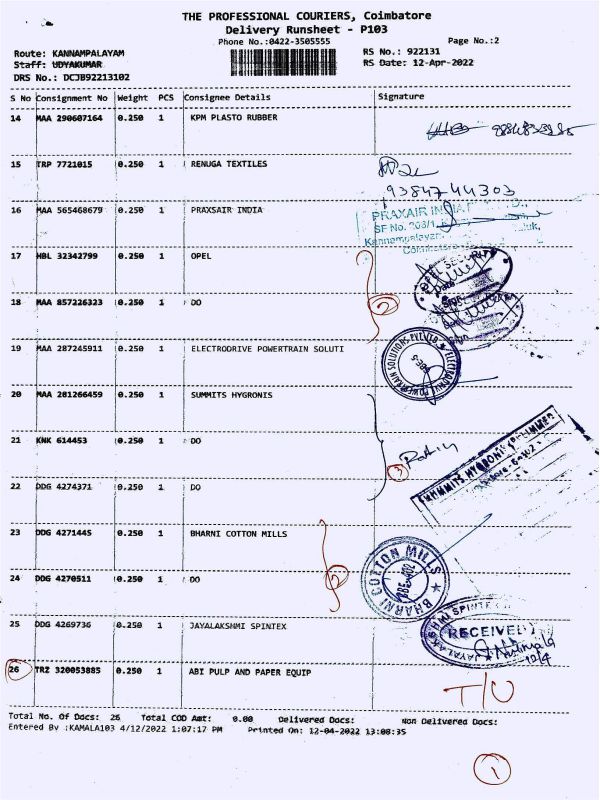 THE PROFESSIONAL COURIERS, Coimbatore
Delivery Runsheet - P103
Phone No.:0422-3505555 Page No.:2
Route: KANNAMPALAYAM RS No.: 922131
Staff: UDYAKUMAR RS Date: 12-Apr-2022
DRS No.: DCJB92213102
S No Consignment No Weight PCS Consignee Details Signature
14 MAA 290607164 0.250 1 KPM PLASTO RUBBER
15 TRP 7721015 0.250 1 RENUGA TEXTILES
9384744303
16 MAA 565468679 0.250 1 PRAXSAIR INDIA
PRAXAIR INDIA
SF No. 308/1,
Kannampalayam
Coimbatore
17 HBL 32342799 0.250 1 OPEL
OPEL SECURITY
Date
Sign
18 MAA 857226323 0.250 1 DO
2
Date
Sign
19 MAA 287245911 0.250 1 ELECTRODRIVE POWERTRAIN SOLUTI
ELECTRODRIVE POWERTRAIN SOLUTIONS PVT LTD
20 MAA 281266459 0.250 1 SUMMITS HYGRONIS
21 KNK 614453 0.250 1 DO
3
SUMMITS HYGRONIS
22 DDG 4274371 0.250 1 DO
23 DDG 4271445 0.250 1 BHARNI COTTON MILLS
24 DDG 4270511 0.250 1 DO
2
BHARNI COTTON MILLS
25 DDG 4269736 0.250 1 JAYALAKSHMI SPINTEX
JAYALAKSHMI SPINTEX
RECEIVED
12/4
26 TRZ 320053885 0.250 1 ABI PULP AND PAPER EQUIP
T/U
Total No. Of Docs: 26 Total COD Amt: 0.00 Delivered Docs: Non Delivered Docs:
Entered By :KAMALA103 4/12/2022 1:07:17 PM Printed On: 12-04-2022 13:08:35
1